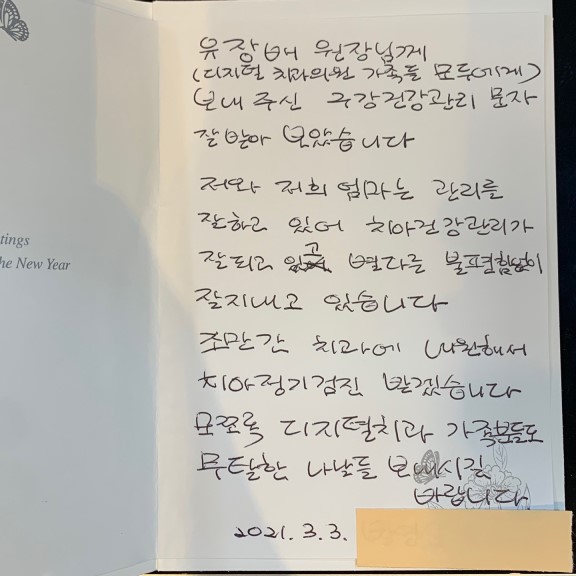 tings
he New Year
유장배 원장님께
(디지털 치과의원 가족들 모두에게)
보내 주신 구강건강관리 문자
잘 받아 보았습니다
저와 저희 엄마는 관리를
잘하고 있어 치아건강관리가
잘되고 있고 별다른 불편함없이
잘지내고 있습니다
조만간 치과에 내원해서
치아정기검진 받겠습니다
모쪼록 디지털치과 가족분들도
무탈한 나날들 보내시길
바랍니다
2021. 3. 3.